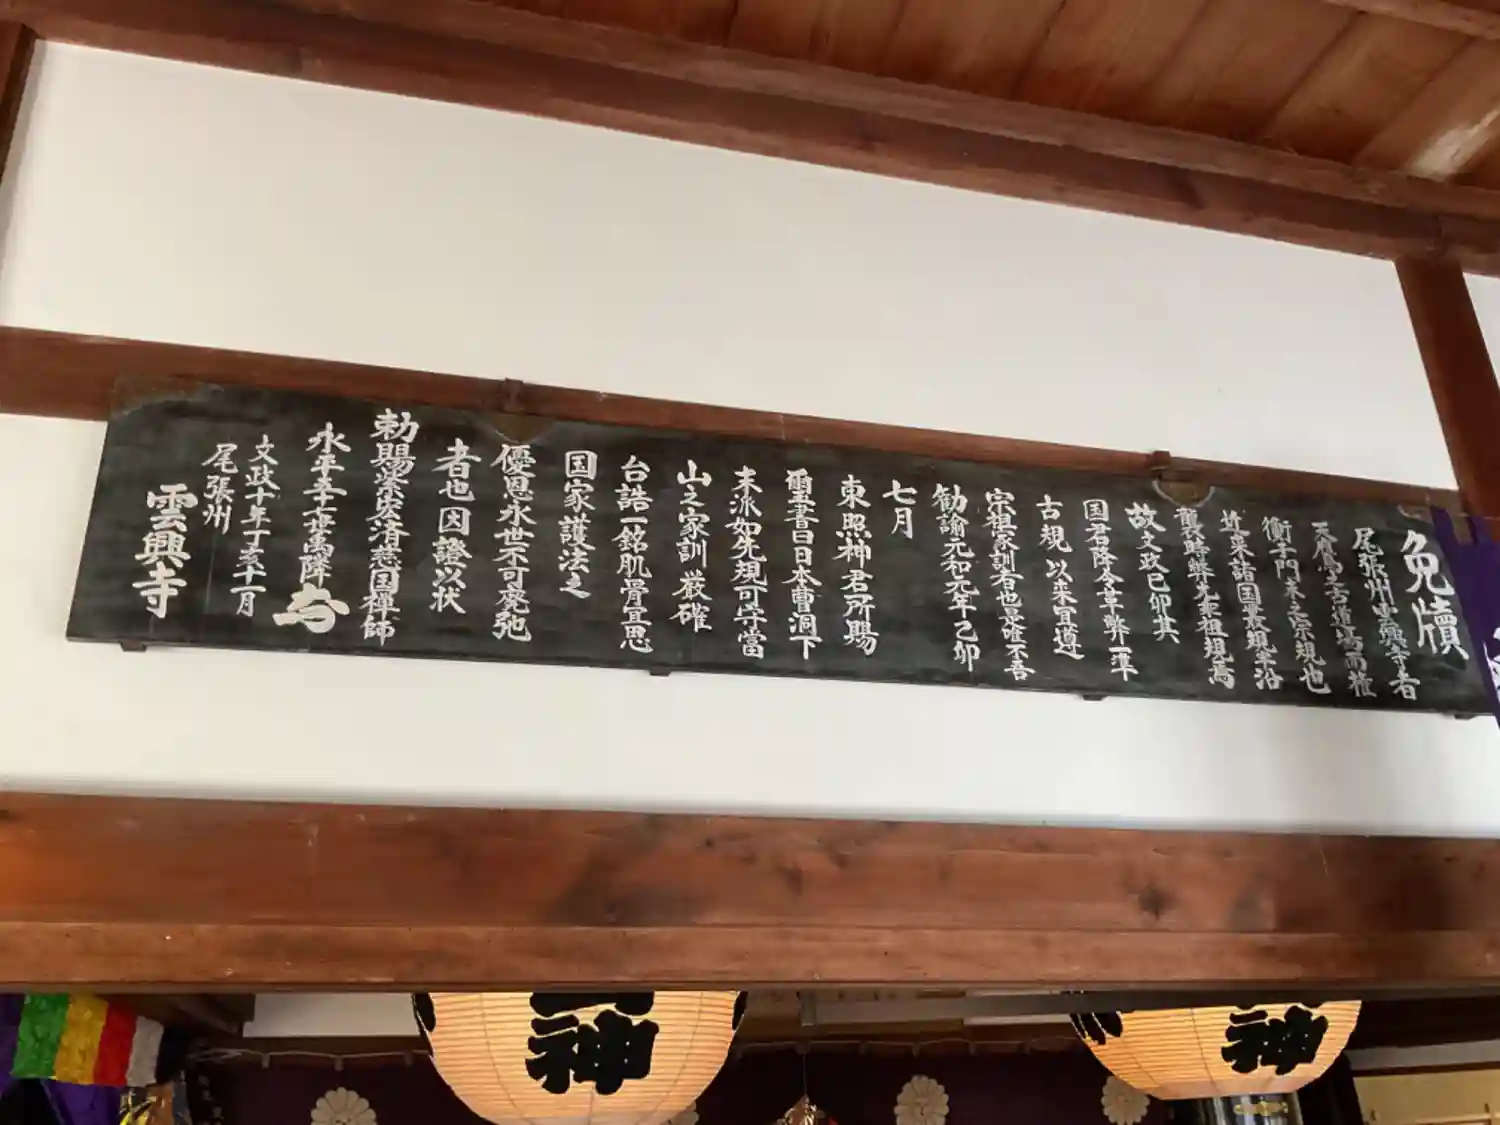 免牘
尾張州雲興寺者
天鷹古道場而
衝門末之宗規也
近来諸国叢規牢沿
襲時弊先乗祖規焉
故文政己卯其
国君降令革弊一準
古規以来宜遵
宗祖家訓者也是唯不吾
勧諭元和元年乙卯
七月
東照神君所賜
璽書曰日本曹洞下
末派如先規可守當
山之家訓厳確
台誥一銘肌骨宜思
国家護法之
優恩永世不可廃弛
者也因證以状
勅賜宏済慈国禅師
永平五十七世禹降
文政十年丁亥十一月
尾張州
雲興寺
神
神